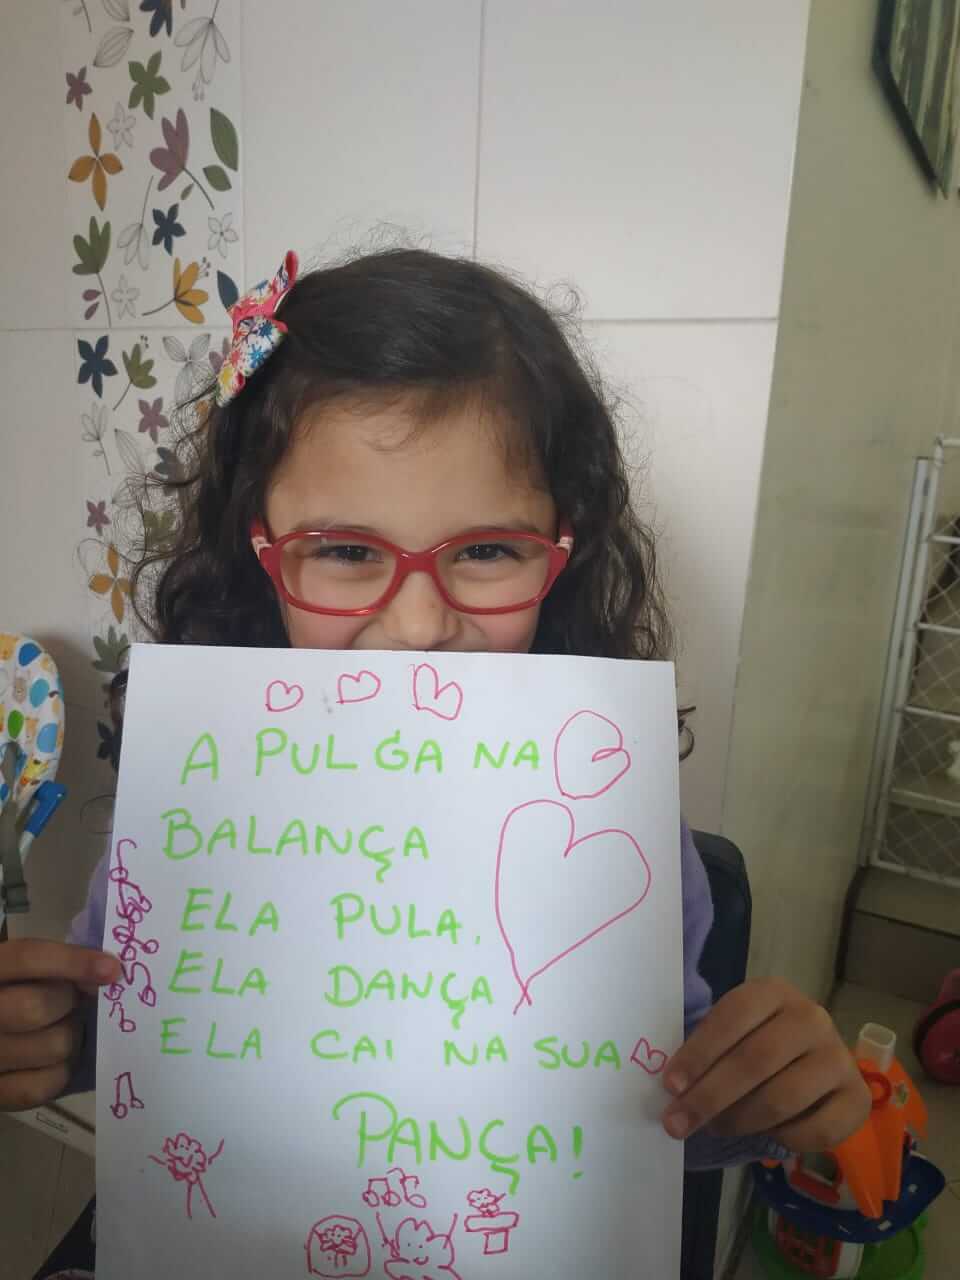 A PULGA NA
BALANÇA
ELA PULA,
ELA DANÇA
ELA CAI NA SUA
PANÇA!